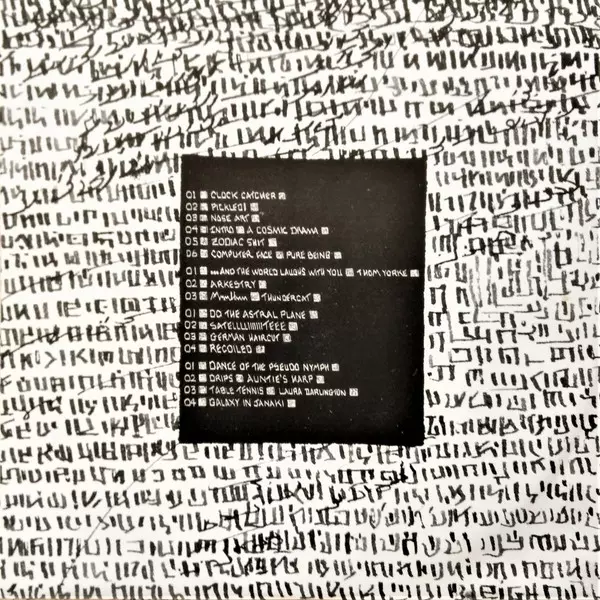 01 CLOCK CATCHER
02 PICKLED!
03 NOSE ART
04 INTRO A COSMIC DRAMA
05 ZODIAC SHIT
06 COMPUTER FACE PURE BEING
01 ...AND THE WORLD LAUGHS WITH YOU THOM YORKE
02 ARKESTRY
03 MmmHmm THUNDERCAT
01 DO THE ASTRAL PLANE
02 SATELLLLIIIIIIITEEE
03 GERMAN HAIRCUT
04 RECOILED
01 DANCE OF THE PSEUDO NYMPH
02 DRIPS AUNTIE'S HARP
03 TABLE TENNIS LAURA DARLINGTON
04 GALAXY IN JANAKI